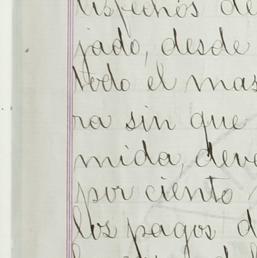 jado, desde
todo el mas
ra sin que
mida, deve
por ciento
los pagos d